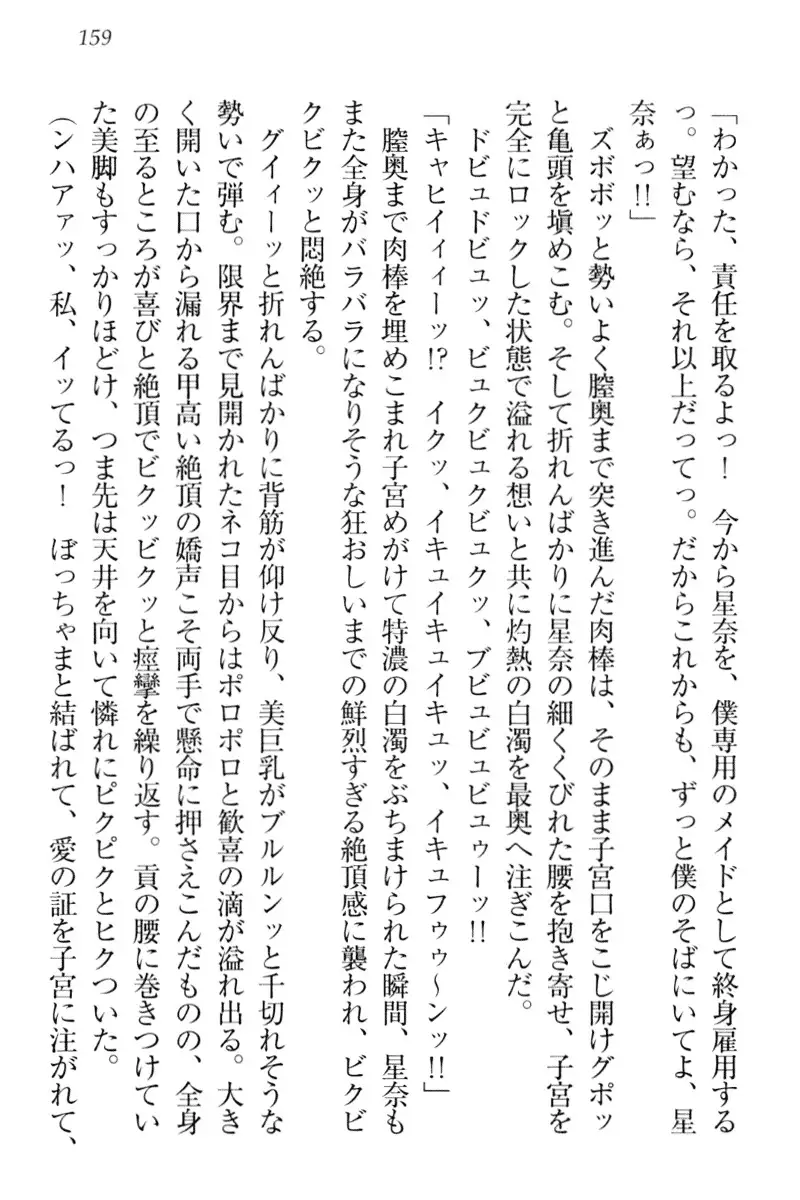 159
「わかった、責任を取るよっ！　今から星奈を、僕専用のメイドとして終身雇用する
っ。望むなら、それ以上だってっ。だからこれからも、ずっと僕のそばにいてよ、星
奈ぁっ!!」
　ズボボッと勢いよく膣奥まで突き進んだ肉棒は、そのまま子宮口をこじ開けグポッ
と亀頭を塡めこむ。そして折れんばかりに星奈の細くくびれた腰を抱き寄せ、子宮を
完全にロックした状態で溢れる想いと共に灼熱の白濁を最奥へ注ぎこんだ。
　ドビュドビュッ、ビュクビュクビュクッ、ブビュビュビュゥーッ!!
「キャヒイィィーッ!?　イクッ、イキュイキュイキュッ、イキュフゥゥ～ンッ!!」
　膣奥まで肉棒を埋めこまれ子宮めがけて特濃の白濁をぶちまけられた瞬間、星奈も
また全身がバラバラになりそうな狂おしいまでの鮮烈すぎる絶頂感に襲われ、ビクビ
クビクッと悶絶する。
　グイィーッと折れんばかりに背筋が仰け反り、美巨乳がブルルンッと千切れそうな
勢いで弾む。限界まで見開かれたネコ目からはポロポロと歓喜の滴が溢れ出る。大き
く開いた口から漏れる甲高い絶頂の嬌声こそ両手で懸命に押さえこんだものの、全身
の至るところが喜びと絶頂でビクッビクッと痙攣を繰り返す。貢の腰に巻きつけてい
た美脚もすっかりほどけ、つま先は天井を向いて憐れにピクピクとヒクついた。
（ンハアァッ、私、イッてるっ！　ぼっちゃまと結ばれて、愛の証を子宮に注がれて、